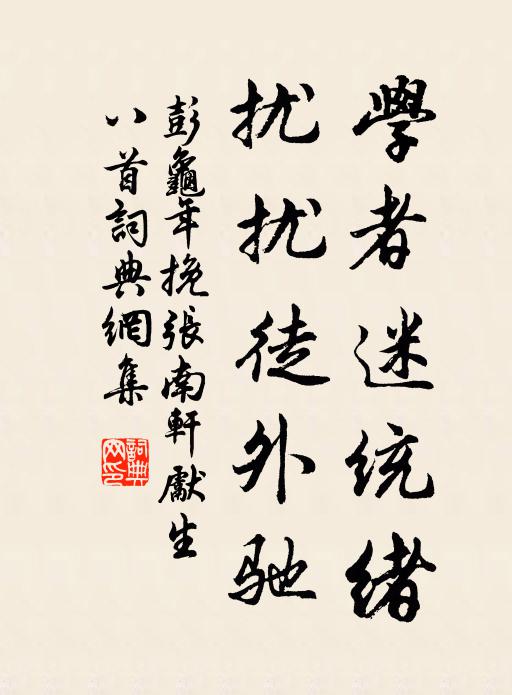 學者迷统绪
扰扰徒外驰
彭龜年挽張南軒獻生
八首詞典網集
詞典網印